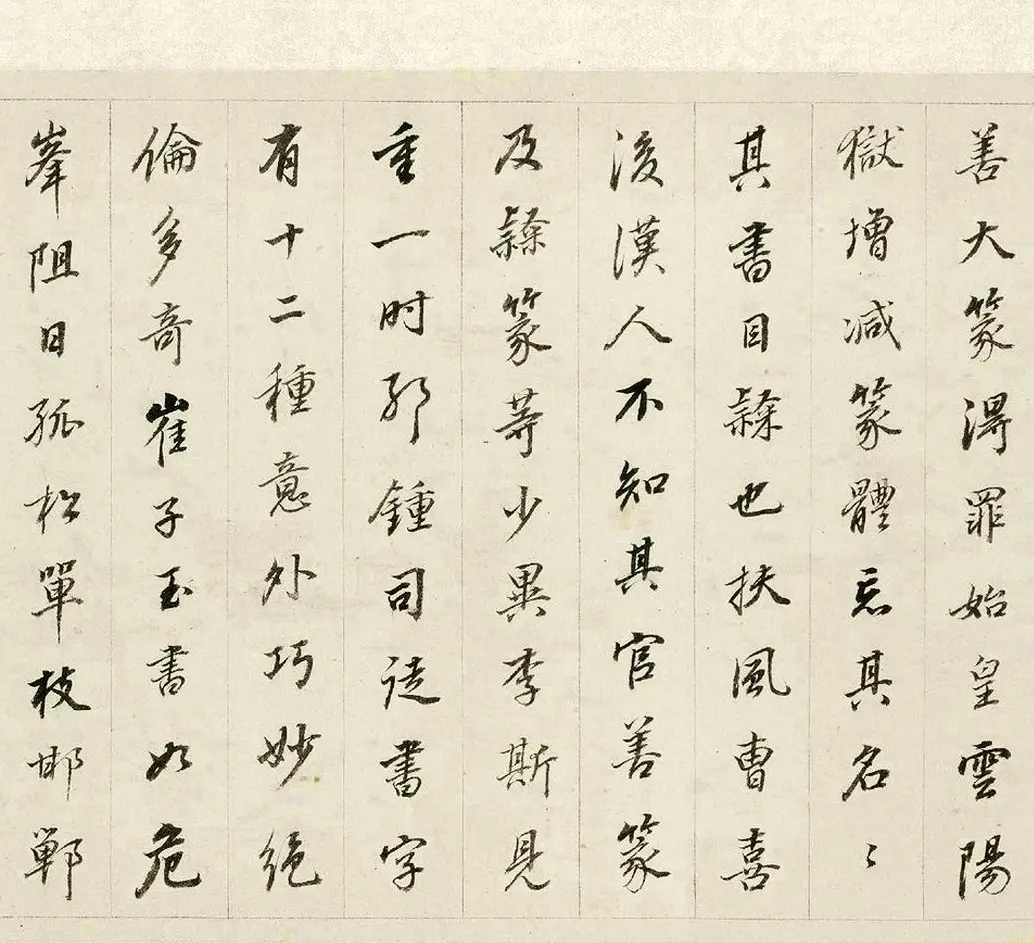 善大篆得罪始皇雲陽
獄增減篆體忘其名〻
其書目隸也扶風曹喜
後漢人不知其官善篆
及隸篆等少異李斯見
重一时邪鍾司徒書字
有十二種意外巧妙绝
倫多奇崔子玉書如危
峯阻日孤松單枝邯鄲